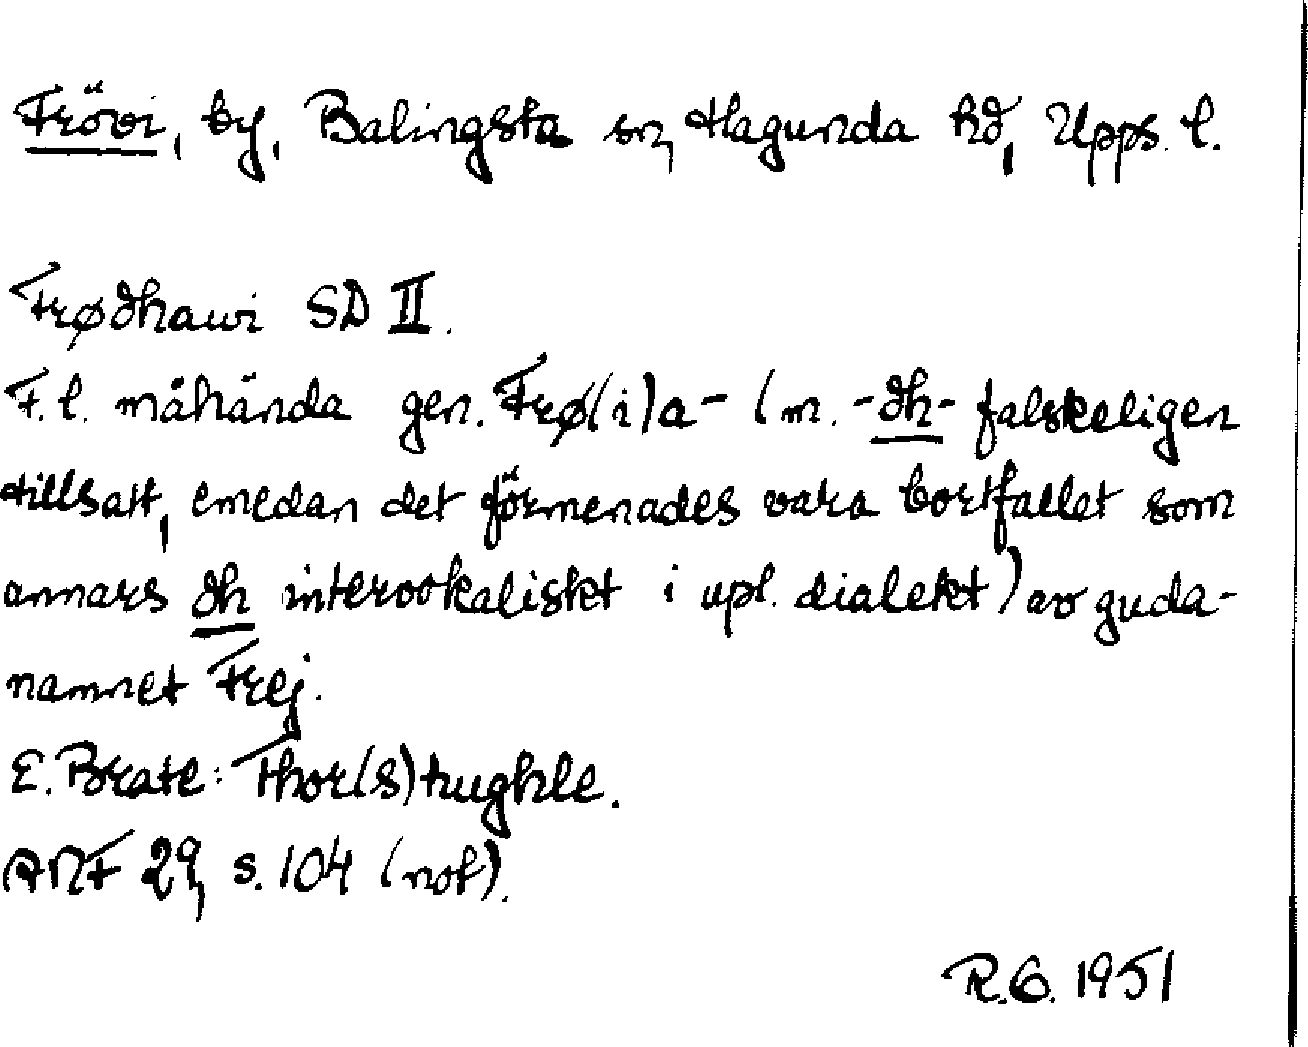 Frövi, by, Balingsta sn, Hagunda hd, Upps. l.
Frødhawi SD II.
F. l. måhända gen. Frø(i)a- (m. -dh- falskeligen
tillsatt, emedan det förmenades vara bortfallet som
annars dh intervokaliskt i upl. dialekt) av guda-
namnet Frej.
E. Brate: Thor(s)hughle.
ANF 29, s. 104 (not).
R.G. 1951